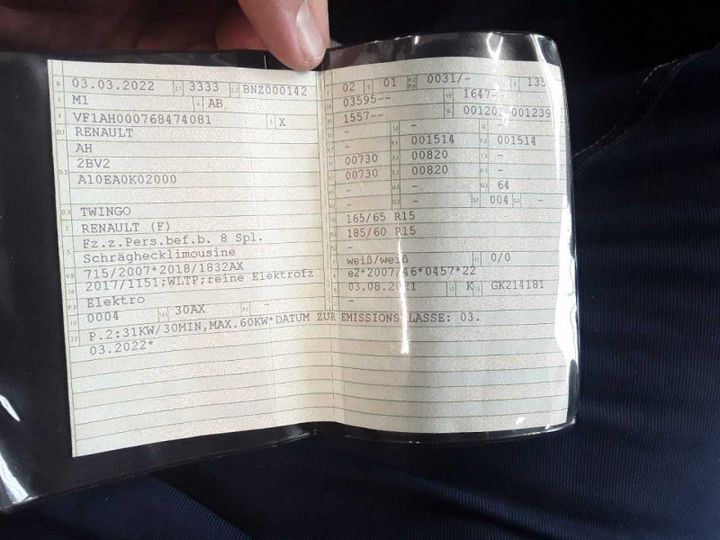 B 03.03.2022 2.1 3333 2.2 BNZ000142
J M1 4 AB
E VF1AH000768474081 3 X
D.1 RENAULT
AH
D.2 2BV2
A10EA0K02000
D.3 TWINGO
2 RENAULT (F)
Fz.z.Pers.bef.b. 8 Spl.
5 Schräghecklimousine
V.9 715/2007*2018/1832AX
14 2017/1151;WLTP;reine Elektrofz
P.3 Elektro
10 0004 14.1 30AX P.1 -
22 P.2:31KW/30MIN,MAX.60KW*DATUM ZUR EMISSIONSKLASSE: 03.
03.2022*
02 9 01 P.2 P.4 0031/- T 135
03595-- 1647--
1557-- G 001208-001239
- - -
- 001514 F.2 001514
00730 00820 -
00730 00820 -
- - U.3 64
- - S.1 004 S.2 -
165/65 R15
185/60 R15
-
weiß/weiß 0/0
e2*2007/46*0457*22
03.08.2021 17 K GK214181
- -